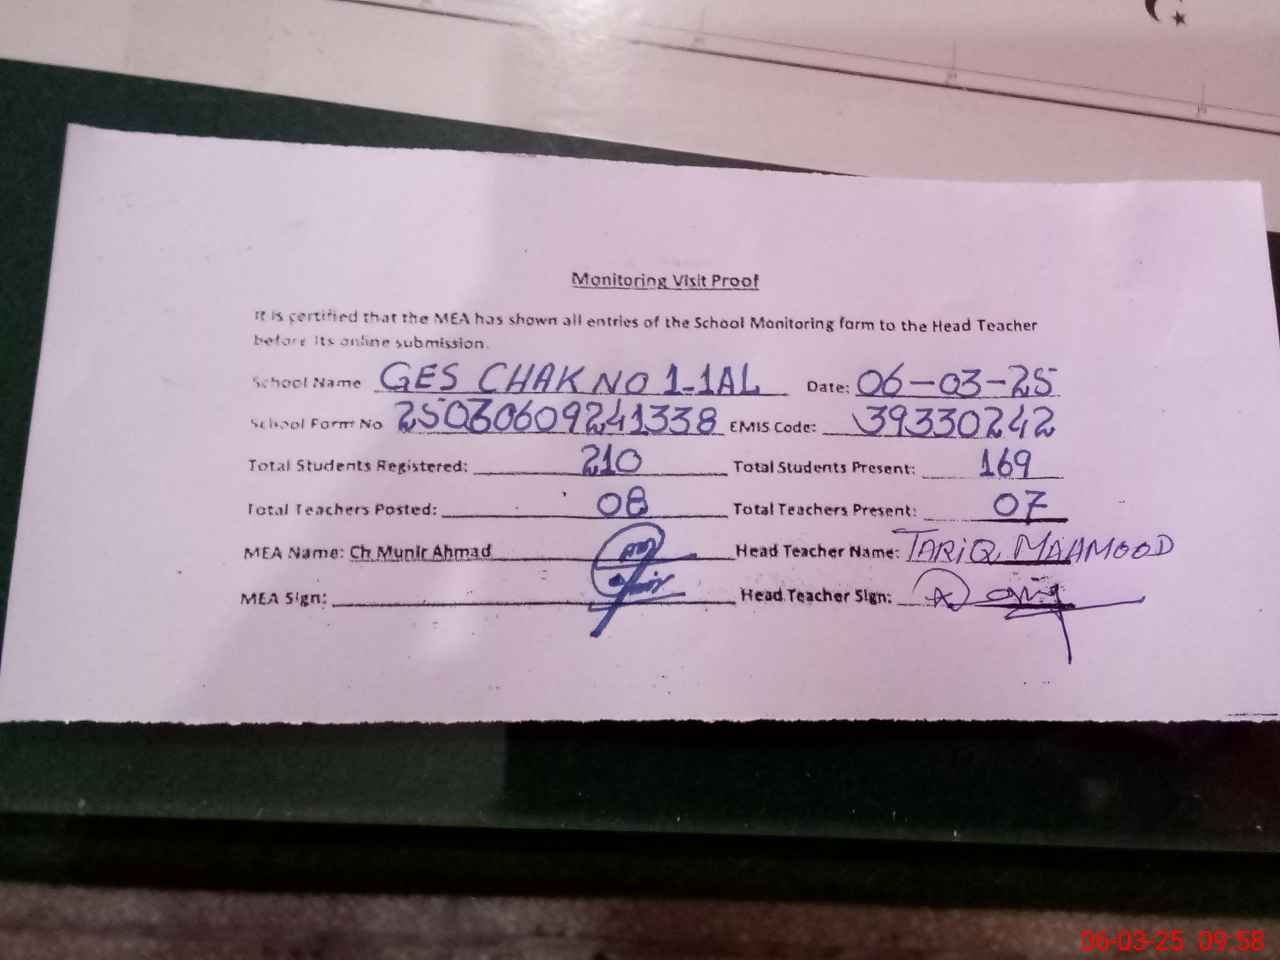 Monitoring Visit Proof
It is certified that the MEA has shown all entries of the School Monitoring form to the Head Teacher
before its online submission.
School Name GES CHAK NO 1-1AL Date: 06-03-25
School Form No 25030609241338 EMIS Code: 39330242
Total Students Registered: 210 Total Students Present: 169
Total Teachers Posted: 08 Total Teachers Present: 07
MEA Name: Ch.Munir Ahmad Head Teacher Name: TARIQ MAHMOOD
MEA Sign: Head Teacher Sign:
06-03-25 09:58